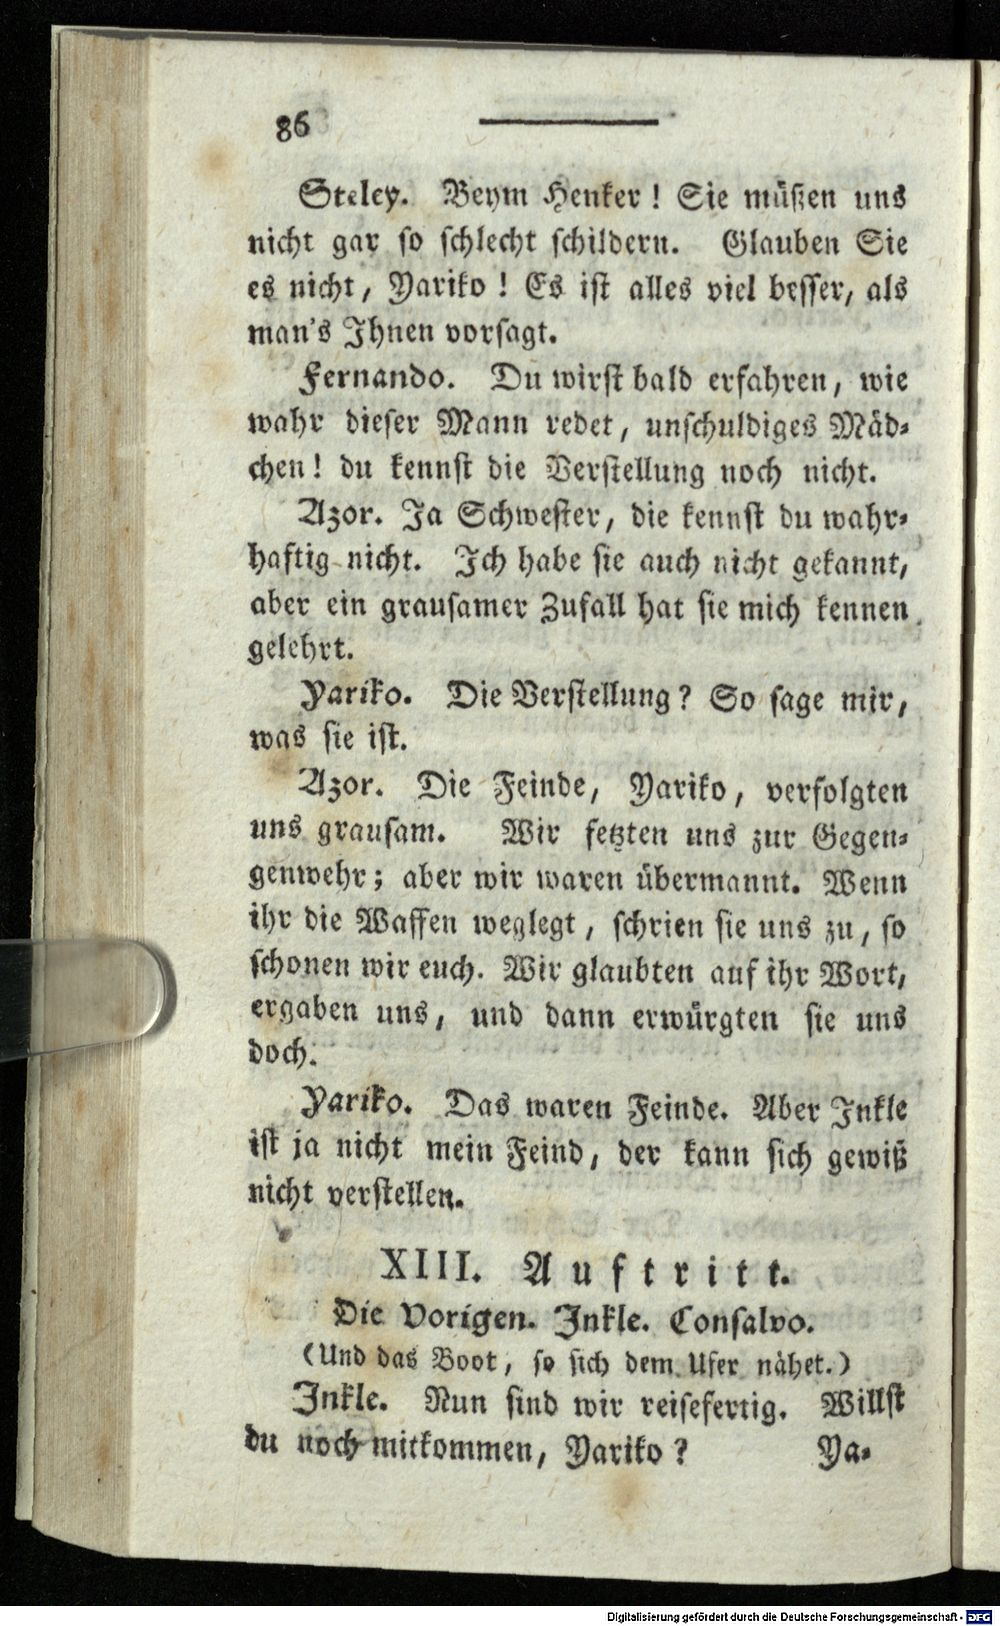 86
Steley. Beym Henker! Sie müßen uns
nicht gar so schlecht schildern. Glauben Sie
es nicht, Yariko! Es ist alles viel besser, als
man's Ihnen vorsagt.
Fernando. Du wirst bald erfahren, wie
wahr dieser Mann redet, unschuldiges Mäd-
chen! du kennst die Verstellung noch nicht.
Azor. Ja Schwester, die kennst du wahr-
haftig nicht. Ich habe sie auch nicht gekannt,
aber ein grausamer Zufall hat sie mich kennen
gelehrt.
Yariko. Die Verstellung? So sage mir,
was sie ist.
Azor. Die Feinde, Yariko, verfolgten
uns grausam. Wir setzten uns zur Gegen-
genwehr; aber wir waren übermannt. Wenn
ihr die Waffen weglegt, schrien sie uns zu, so
schonen wir euch. Wir glaubten auf ihr Wort,
ergaben uns, und dann erwürgten sie uns
doch.
Yariko. Das waren Feinde. Aber Inkle
ist ja nicht mein Feind, der kann sich gewiß
nicht verstellen.
XIII. Auftritt.
Die Vorigen. Inkle. Consalvo.
(Und das Boot, so sich dem Ufer nähet.)
Inkle. Nun sind wir reisefertig. Willst
du noch mitkommen, Yariko? Ya-
Digitalisierung gefördert durch die Deutsche Forschungsgemeinschaft - DFG